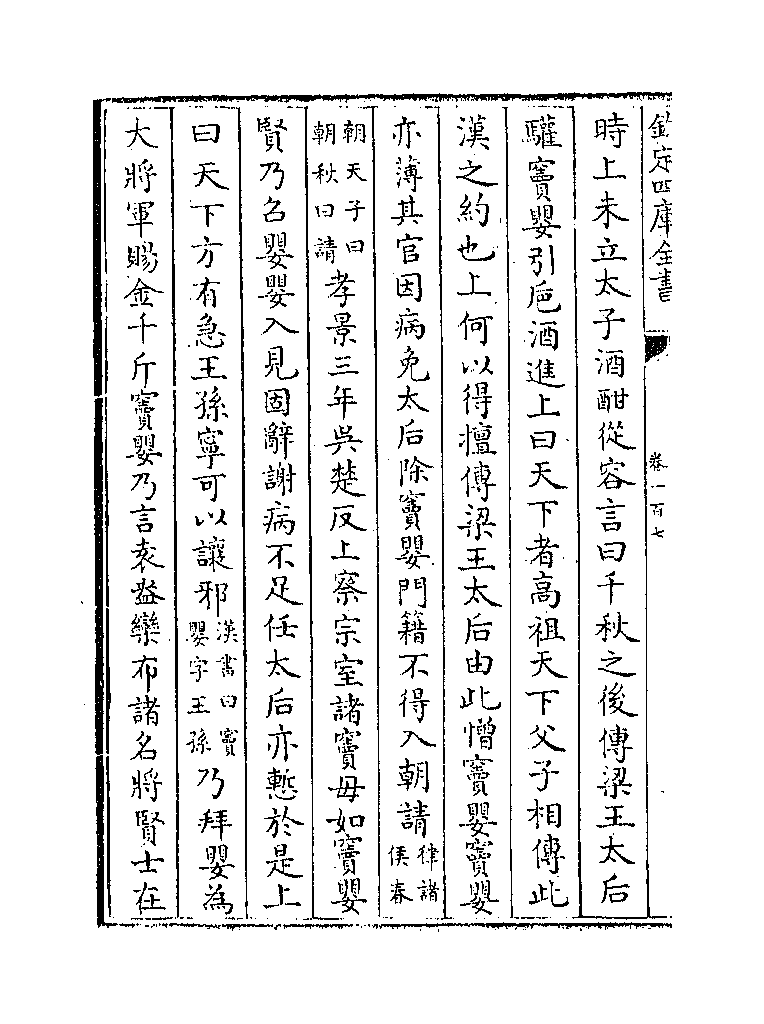 欽定四庫全書
卷一百七
時上未立太子酒酣從容言曰千秋之後傳梁王太后
驩竇嬰引巵酒進上曰天下者髙祖天下父子相傳此
漢之約也上何以得擅傳梁王太后由此憎竇嬰竇嬰
亦薄其官因病免太后除竇嬰門籍不得入朝請律諸侯春
朝天子曰朝秋曰請孝景三年吳楚反上察宗室諸竇毋如竇嬰
賢乃召嬰嬰入見固辭謝病不足任太后亦慙於是上
曰天下方有急王孫寧可以讓邪漢書曰竇嬰字王孫乃拜嬰為
大將軍賜金千斤竇嬰乃言袁盎欒布諸名將賢士在